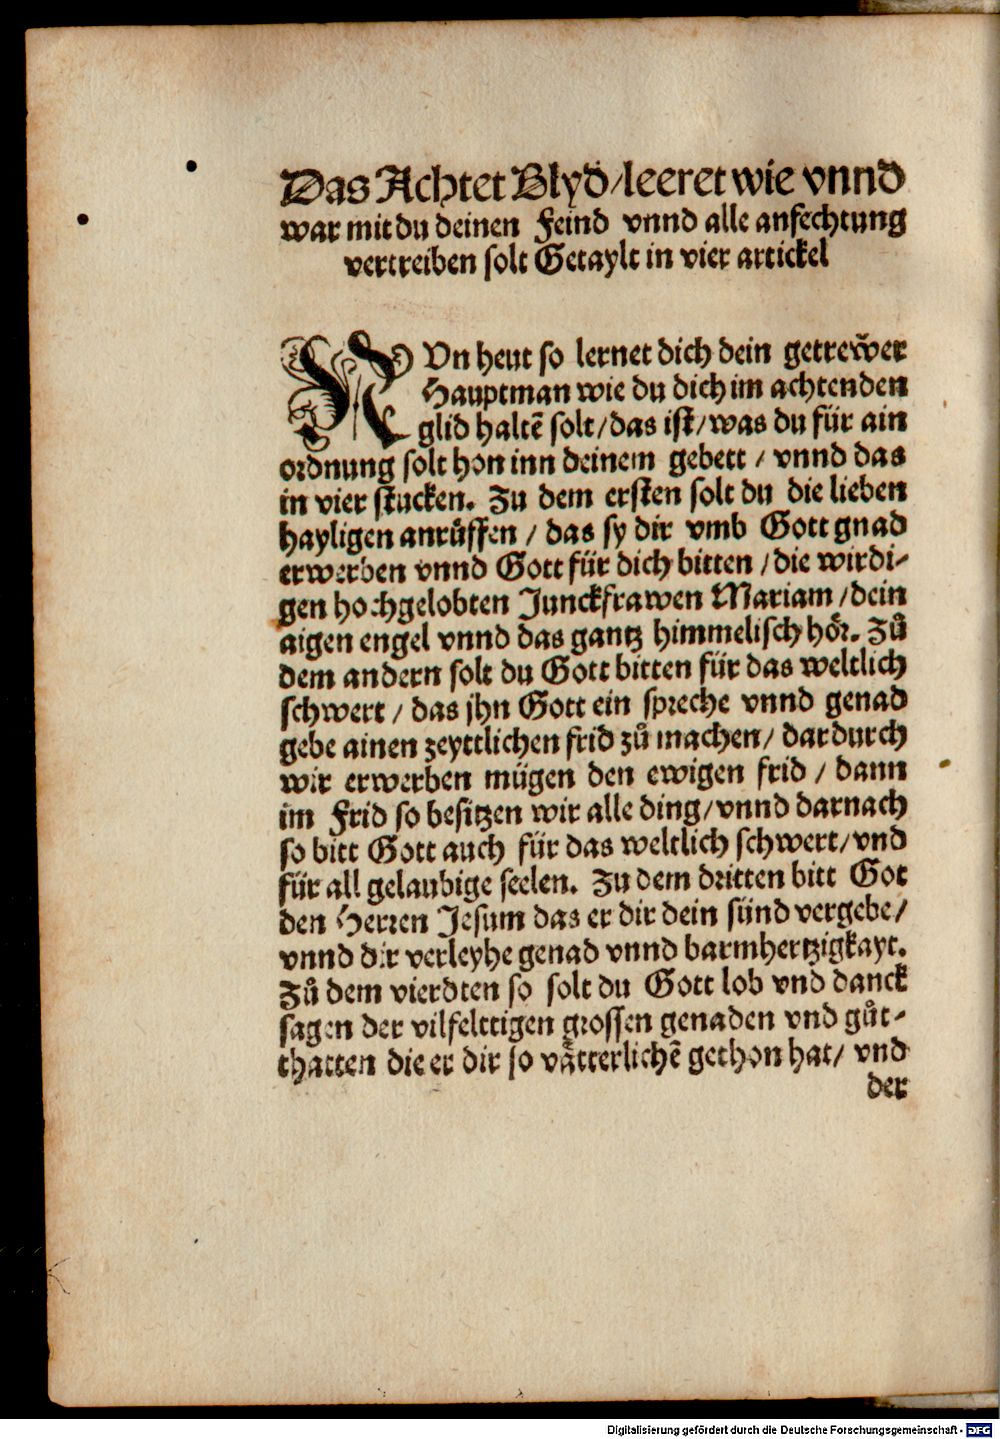 Das Achtet Glyd/leeret wie vnnd
war mit du deinen Feind vnnd alle anfechtung
vertreiben solt Getaylt in vier artickel
NVn heut so lernet dich dein getreẅer
Hauptman wie du dich im achtenden
glid haltē solt/das ist/was du für ain
ordnung solt hon inn deinem gebett / vnnd das
in vier stucken. Zu dem ersten solt du die lieben
hayligen anrůffen / das sy dir vmb Gott gnad
erwerben vnnd Gott für dich bitten /die wirdi-
gen hochgelobten Junckfrawen Mariam /dein
aigen engel vnnd das gantz himmelisch hör. Zů
dem andern solt du Gott bitten für das weltlich
schwert / das jhn Gott ein spreche vnnd genad
gebe ainen zeyttlichen frid zů machen/ dardurch
wir erwerben mügen den ewigen frid / dann
im Frid so besitzen wir alle ding/vnnd darnach
so bitt Gott auch für das weltlich schwert/vnd
für all gelaubige seelen. Zu dem dritten bitt Got
den Herren Jesum das er dir dein sünd vergebe/
vnnd dir verleyhe genad vnnd barmhertzigkayt.
Zů dem vierdten so solt du Gott lob vnd danck
sagen der vilfelttigen grossen genaden vnd gůt-
thatten die er dir so vätterlichē gethon hat/ vnd
der
Digitalisierung gefördert durch die Deutsche Forschungsgemeinschaft - DFG